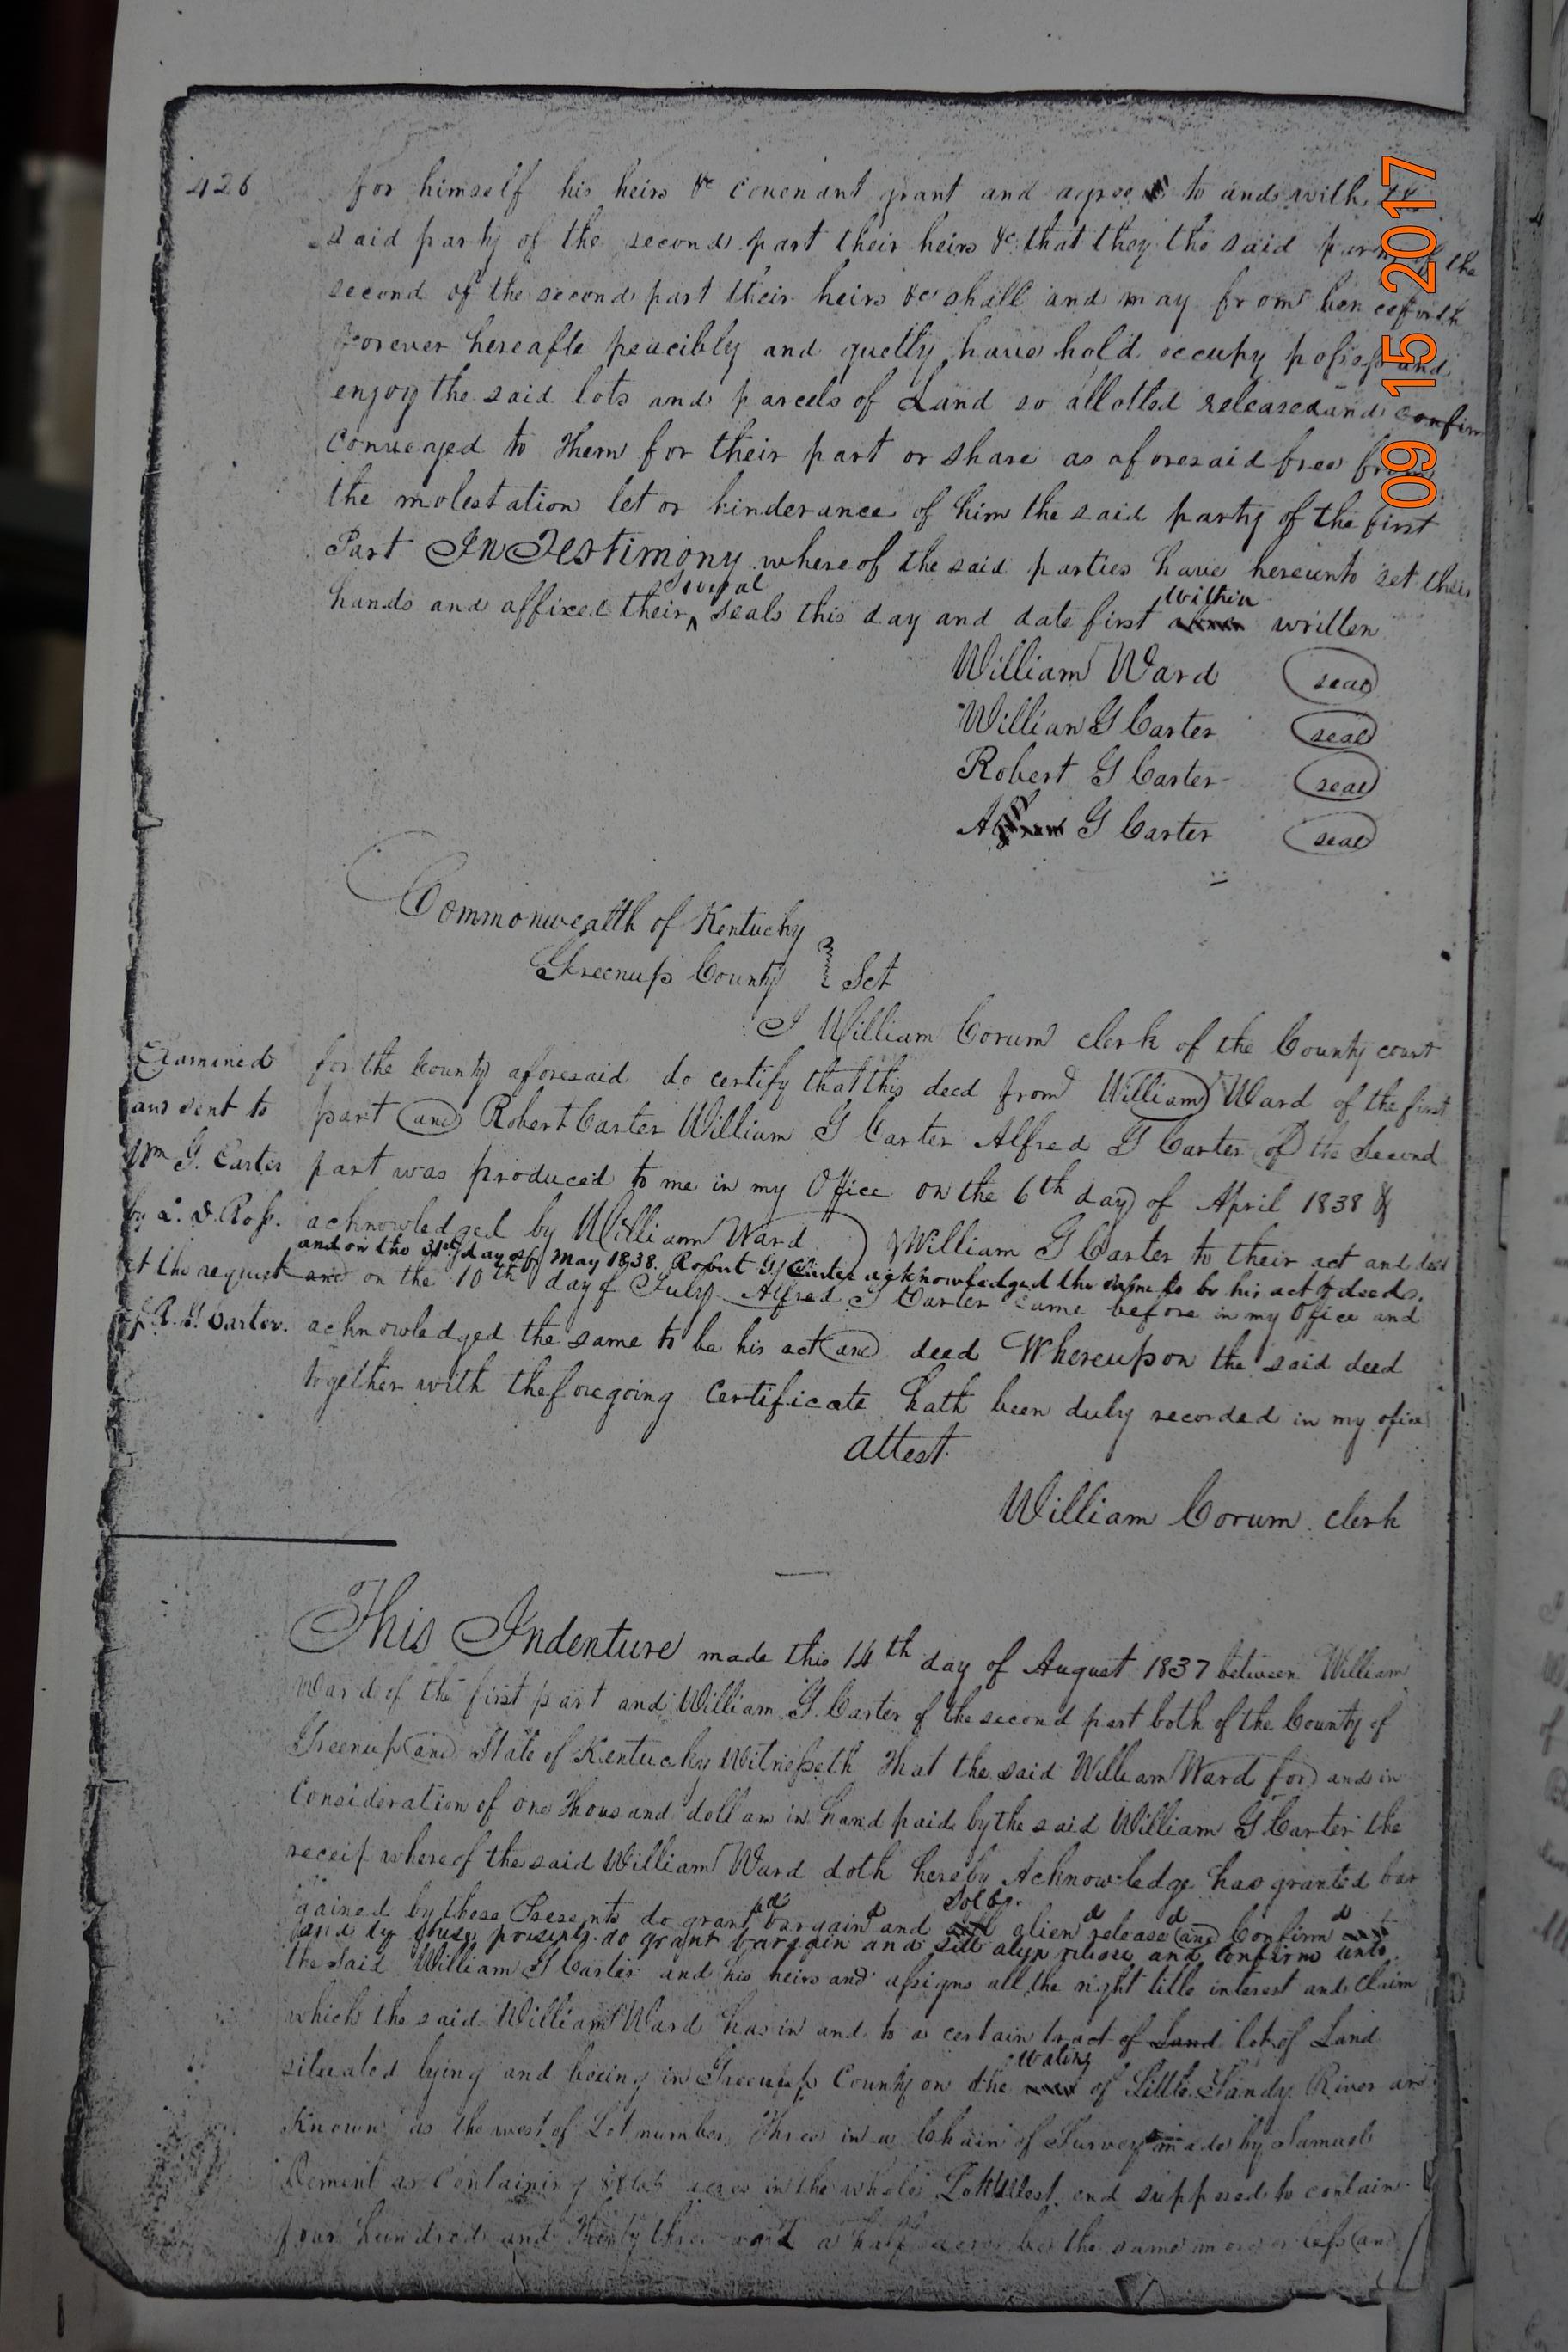 426
for himself his heirs &c covenant grant and agree to and with the
said party of the second part their heirs &c that they the said party of the
second of the second part their heirs &c shall and may from henceforth
forever hereafte peacibly and quetly have hold occupy possess and
enjoy the said lots and parcels of Land so allotted released and confirm
conveyed to them for their part or share as aforesaid free from
the molestation let or hinderance of him the said party of the first
Part In Testimony whereof the said parties have hereunto set their
several
within
hands and affixed their seals this day and date first above written
William Ward seal
William G Carter seal
Robert G Carter seal
Alfred G Carter seal
Commonwealth of Kentucky
Greenup County Sct
I William Corum clerk of the County court
for the County aforesaid do certify that this deed from William Ward of the first
part and Robert Carter William G Carter Alfred G Carter of the Second
part was produced to me in my Office on the 6th day of April 1838 &
acknowledged by William Ward & William G Carter to their act and deed
and on the 31st day of May 1838 Robert G Carter acknowledged the same to be his act & deed.
and on the 10th day of July Alfred G Carter came before in my Office and
acknowledged the same to be his act and deed Whereupon the said deed
together with the foregoing certificate hath been duly recorded in my ofice
attest
William Corum clerk
Examined
and sent to
Wm G. Carter
by L. D. Ross.
at the request
of R. G. Carter.
This Indenture made this 14th day of August 1837 between William
Ward of the first part and William G. Carter of the second part both of the County of
Greenup and State of Kentucky Witnesseth That the said William Ward for and in
Consideration of one Thousand dollars in hand paid by the said William G Carter the
receip whereof the said William Ward doth hereby Acknowledge has granted bar
ed d Sold d d d
gained by these Presents do grant bargain and sell alien release and Confirm unto
and by these presents do grant bargain and sell alyn release and confirm unto.
the said William G Carter and his heirs and assigns all the right title interest and claim
which the said William Ward has in and to a certain tract of Land lot of Land
waters
situated lying and being in Greenup County on the of Little Sandy River and
Known as the west of Lot number Three in a Chain of Survey made by Samuel
Dement as Containing acres in the whole Lott West end supposed to contain
four hundred and three and a half acres be the same more or less and
09 15 2017